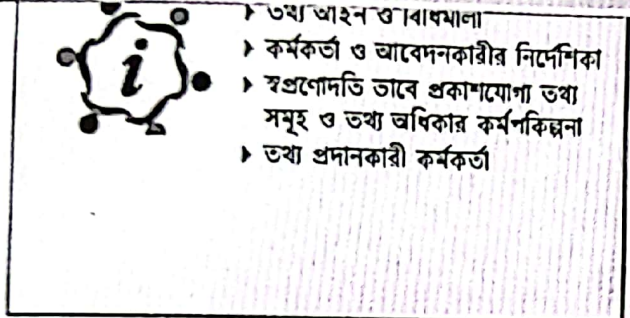 তথ্য আইন ও বিধিমালা
কর্মকর্তা ও আবেদনকারীর নির্দেশিকা
স্বপ্রণোদিত ভাবে প্রকাশযোগ্য তথ্য
সমূহ ও তথ্য অধিকার কর্মপরিকল্পনা
তথ্য প্রদানকারী কর্মকর্তা
i